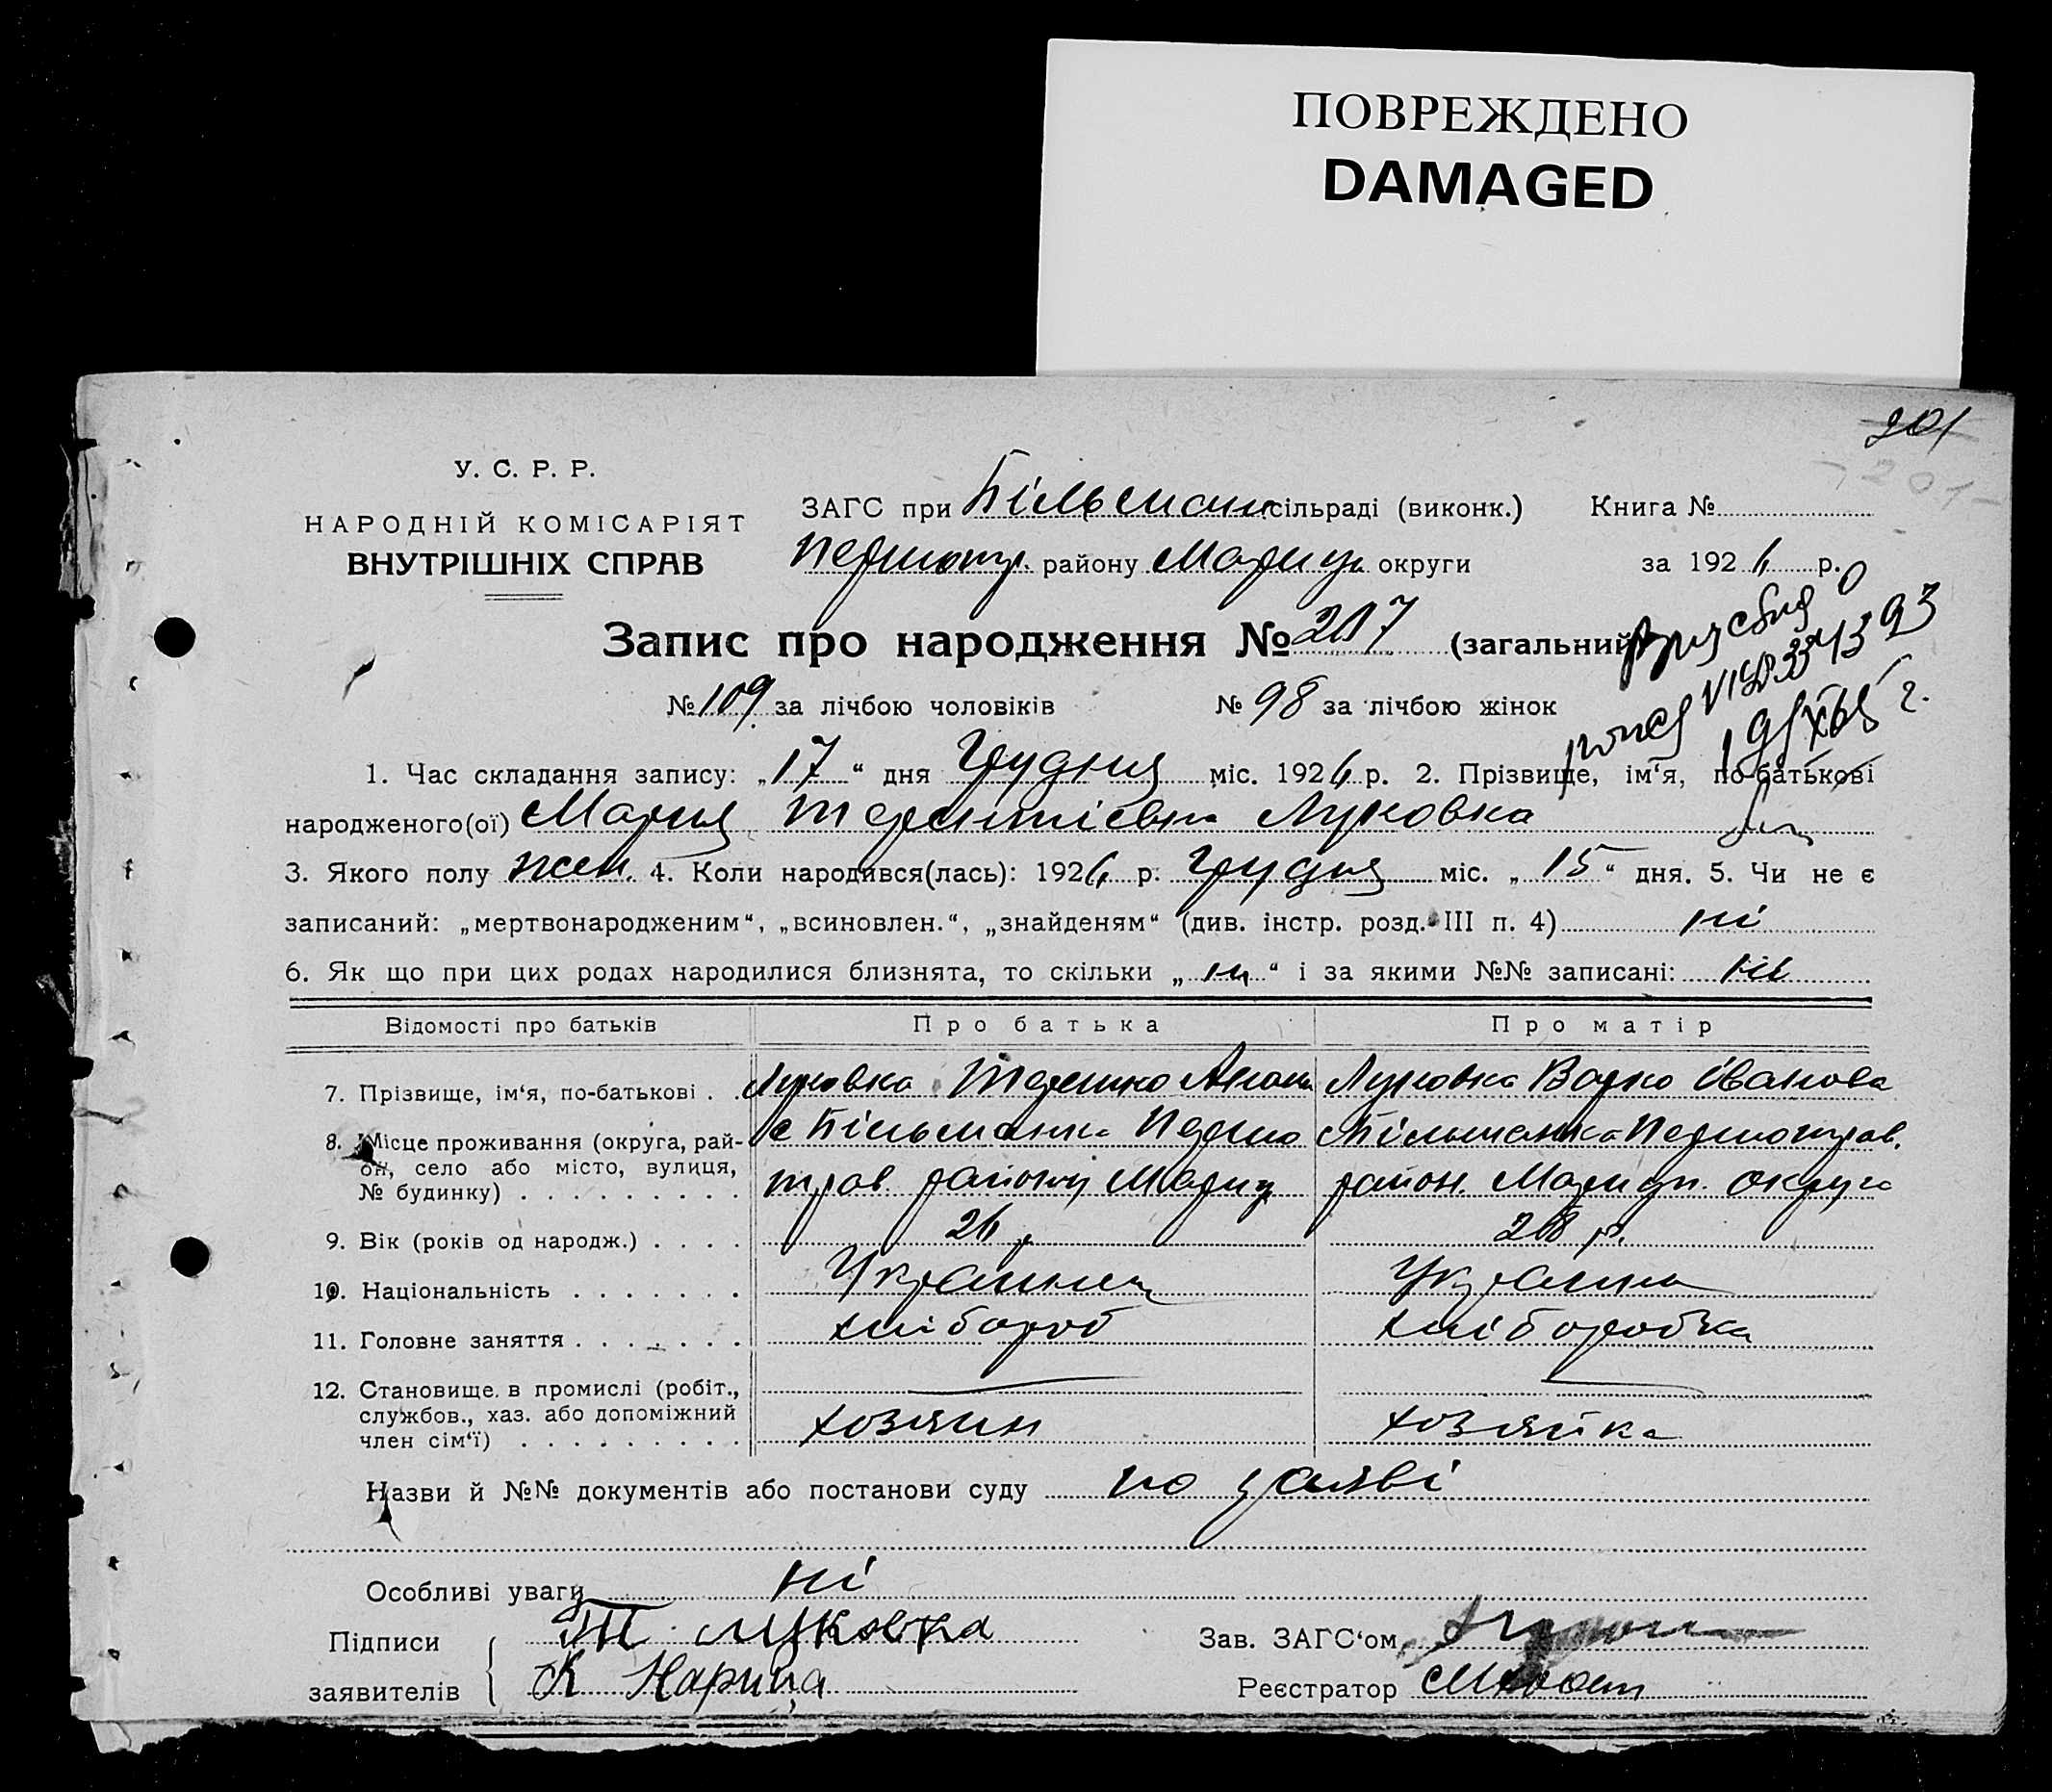 ПОВРЕЖДЕНО
DAMAGED
201
201
У. С. Р. Р.
НАРОДНІЙ КОМІСАРІЯТ
ВНУТРІШНІХ СПРАВ
ЗАГС при Більман сільраді (виконк.) Книга №
району Маріуп округи за 1926 р.
Запис про народження № 207 (загальний
№ 109 за лічбою чоловіків № 98 за лічбою жінок
1. Час складання запису: „17“ дня Грудня міс. 1926 р. 2. Прізвище, ім‘я, по-батькові
народженого(ої) Мария Терентієвна Луковка
3. Якого полу жен. 4. Коли народився(лась): 1926 р. Грудня міс. „15“ дня. 5. Чи не є
записаний: „мертвонародженим“, „всиновлен.“, „знайденям“ (див. інстр. розд. III п. 4) ні
6. Як що при цих родах народилися близнята, то скільки „ні“ і за якими №№ записані: ні
Відомості про батьків Про батька Про матір
7. Прізвище, ім‘я, по-батькові . . Луковка Терешко Луковка Варко Іванова
8. Місце проживання (округа, рай-
он, село або місто, вулиця,
№ будинку) . . . . . . . . .
с Більманка Першо
трав району Маріуп
с Більманка Першотрав.
район. Маріуп. округа
9. Вік (років од народж.) . . . . 26 р 28 р.
10. Національність . . . . . . . Украинец Украинка
11. Головне заняття . . . . . . . хлібороб хліборобка
12. Становище в промислі (робіт.,
службов., хаз. або допоміжний
член сім‘ї) . . . . . . . . .
хозяин хозяйка
Назви й №№ документів або постанови суду по заяві
Особливі уваги ні
Підписи Т. Луковка Зав. ЗАГС‘ом
заявителів К Нарица Реєстратор